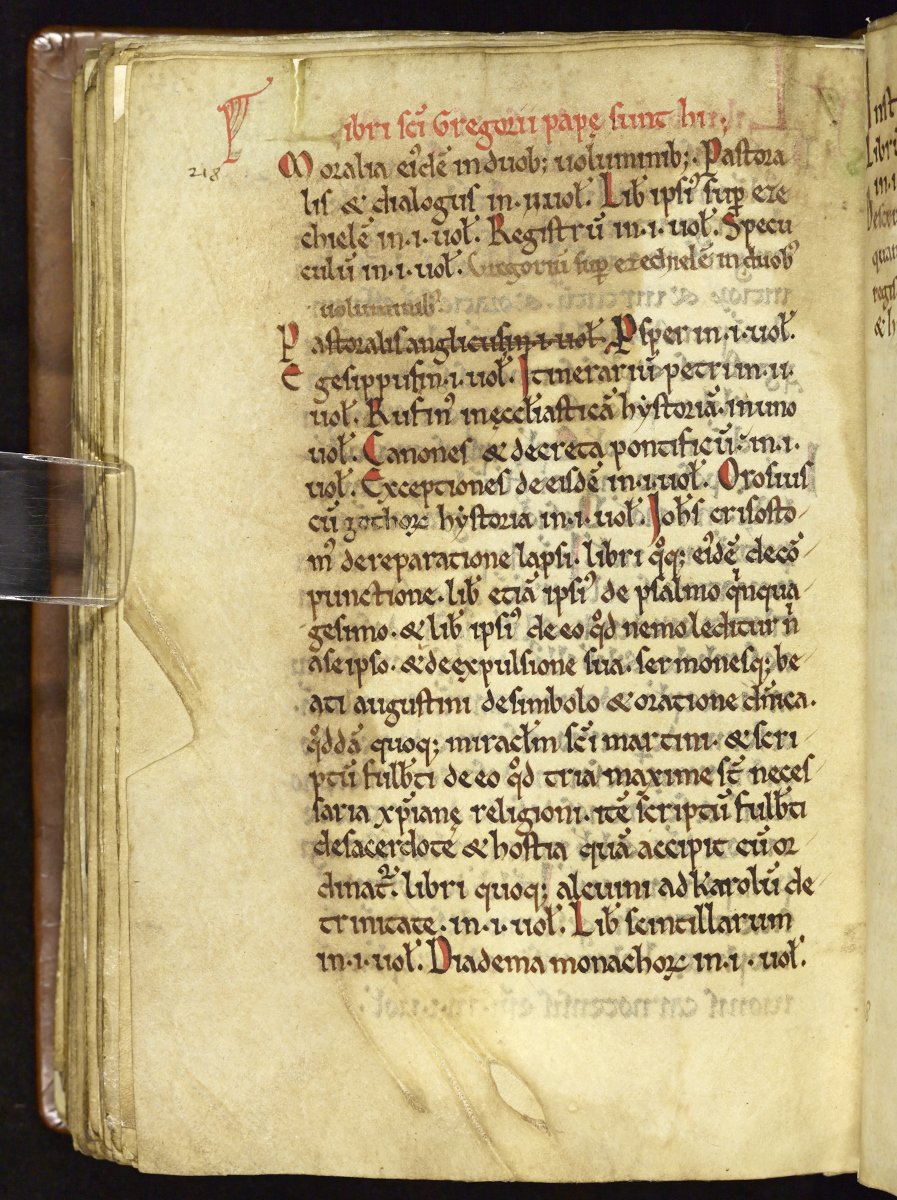 Libri sc̄i Gregorii papę sunt hii;
218
Moralia ei᾽dē in duob; uoluminib; Pastora
lis & dialogus in .i. uol̄. Lib̄ ipsi᾽ sup̄ eze
chielē in .i. uol̄. Registrū in .i. uol̄. Specu
culū in .i. uol̄. Gregoriū sup̄ ezechielē in duob᾽
uoluminib᾽
Pastoralis anglicus in .i. uol̄. Psp̄er in .i. uol̄.
Egesippus in .i. uol̄. Itinerariū petri in .i.
uol̄. Rufin᾽ in ęccl̄iasticā hẏstoriā. in uno
uol̄. Canones & decreta pontificū. in .i.
uol̄. Exceptiones de eisdē in .i. uol̄. Orosius
cū gothoꝝ hẏstoria in .i. uol̄. Joh̄s crisosto-
m᾽ de reparatione lapsi. libri qͦq; ei᾽dē de cō
punctione. lib̄ etiā ipsi᾽ de psalmo qͥnqua
gesimo. & lib̄ ipsi᾽ de eo qͦd nemo leditur n̄
a se ipso. & de ęxpulsione sua. sermonesq; be
ati augustini de simbolo & oratione dn̄ica.
qͦddā quoq; miracl̄m sc̄i martini. & scri
ptū fulb̄ti de eo qͦd tria maxime st̄ neces
saria xp̄ianę religioni. itē scriptū fulb̄ti
de sacerdote & hostia quā accipit cū or
dinat᷑. libri quoq; alcuini ad karolū de
trinitate. in .i. uol̄. Lib̄ scintillarum
in .i. uol̄. Diadema monachoꝝ in .i. uol̄.